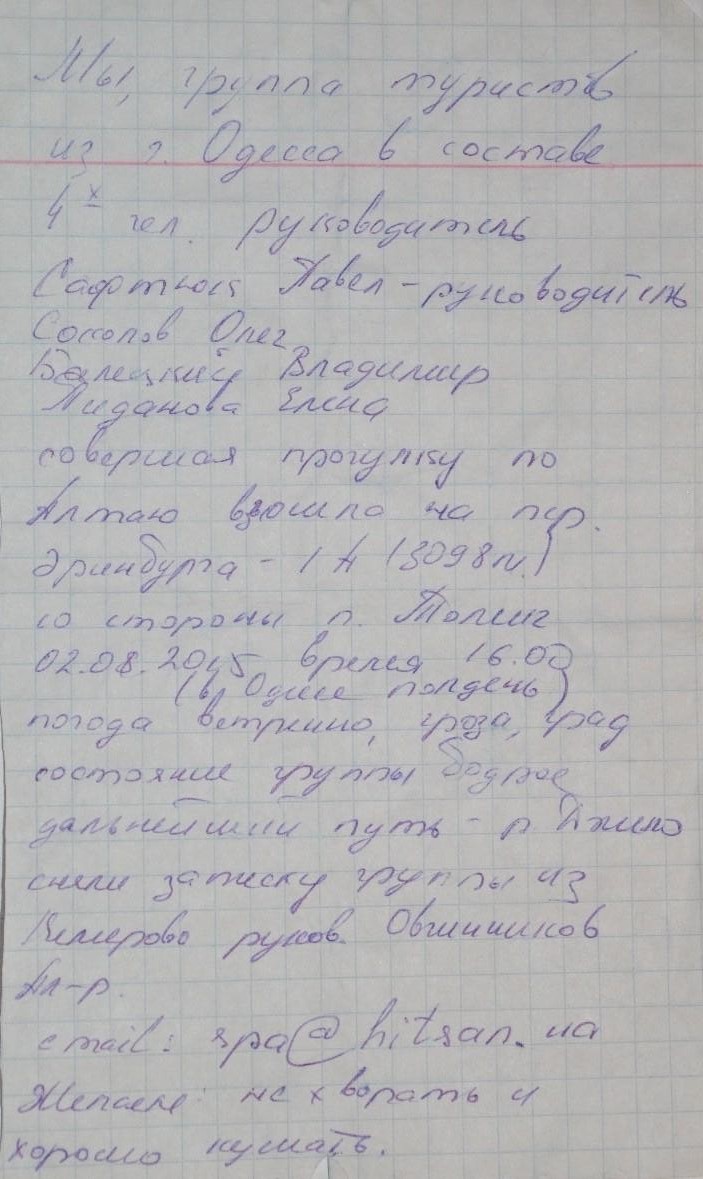 Мы, группа туристов
из г. Одесса в составе
4х чел. руководитель
Сафтюк Павел - руководитель
Соколов Олег
Балецкий Владимир
Лиданова Елена
совершая прогулку по
Алтаю взошла на пер.
- 1А (3098м.)
со стороны п. Томич
02.08.2015 время 16.00
(в Одессе полдень)
погода ветренно, гроза, град
состояние группы бодрое
дальнейший путь - р.
сняли записку группы из
Кемерово руков. Овчинников
Ал-р.
email: spa@hitsan.ua
Желаем: не хворать и
хорошо кушать.